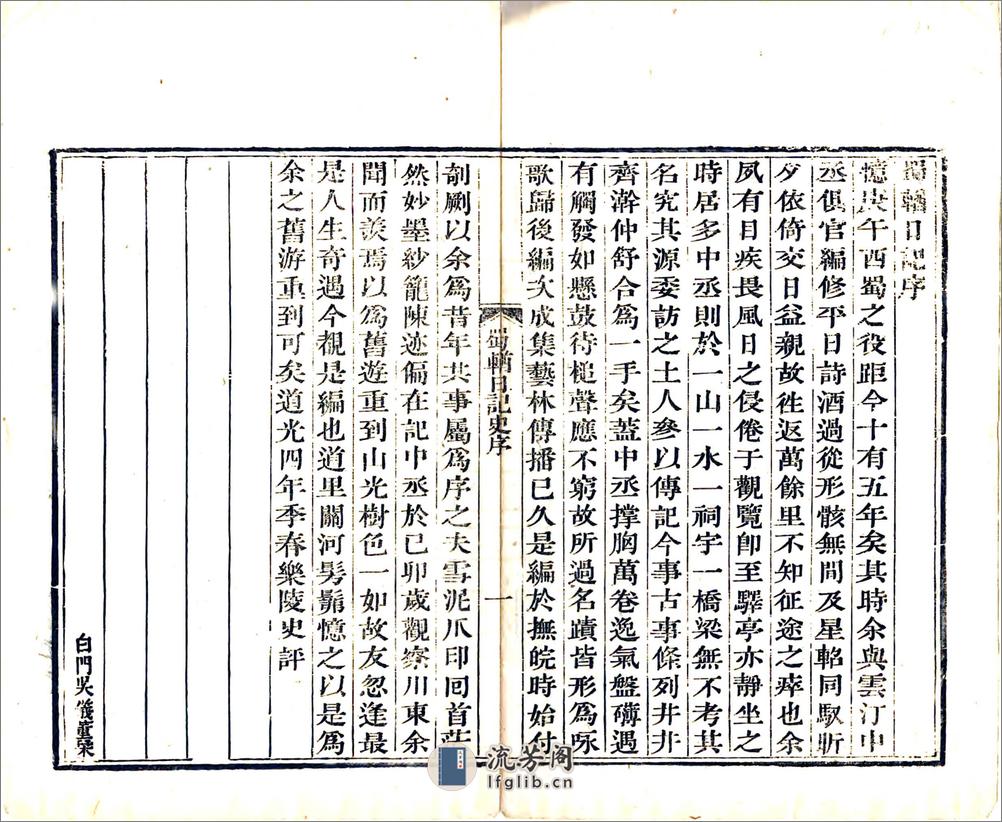 蜀輶日記序
憶庚午西蜀之役距今十有五年矣其時余與雲汀中
丞俱官編修平日詩酒過從形骸無間及星軺同馭昕
夕依倚交日益親故往返萬餘里不知征途之瘁也余
夙有目疾畏風日之侵倦于觀覽卽至驛亭亦靜坐之
時居多中丞則於一山一水一祠宇一橋梁無不考其
名究其源委訪之土人參以傳記今事古事條列井井
齊澣仲舒合爲一手矣蓋中丞撑胸萬卷逸氣盤礴遇
有觸發如懸鼓待槌聲應不窮故所過名蹟皆形爲咏
歌歸後編次成集藝林傳播已久是編於撫皖時始付
蜀輶日記史序
一
剞劂以余爲昔年共事屬爲序之夫雪泥爪印回首茫
然妙墨紗籠陳迹偏在記中丞於己卯歲觀察川東余
聞而羨焉以爲舊遊重到山光樹色一如故友忽逢最
是人生奇遇今覩是編也道里關河髣髴憶之以是爲
余之舊游重到可矣道光四年季春樂陵史評
白門吳儀董棨
流芳阁
lfglib.cn